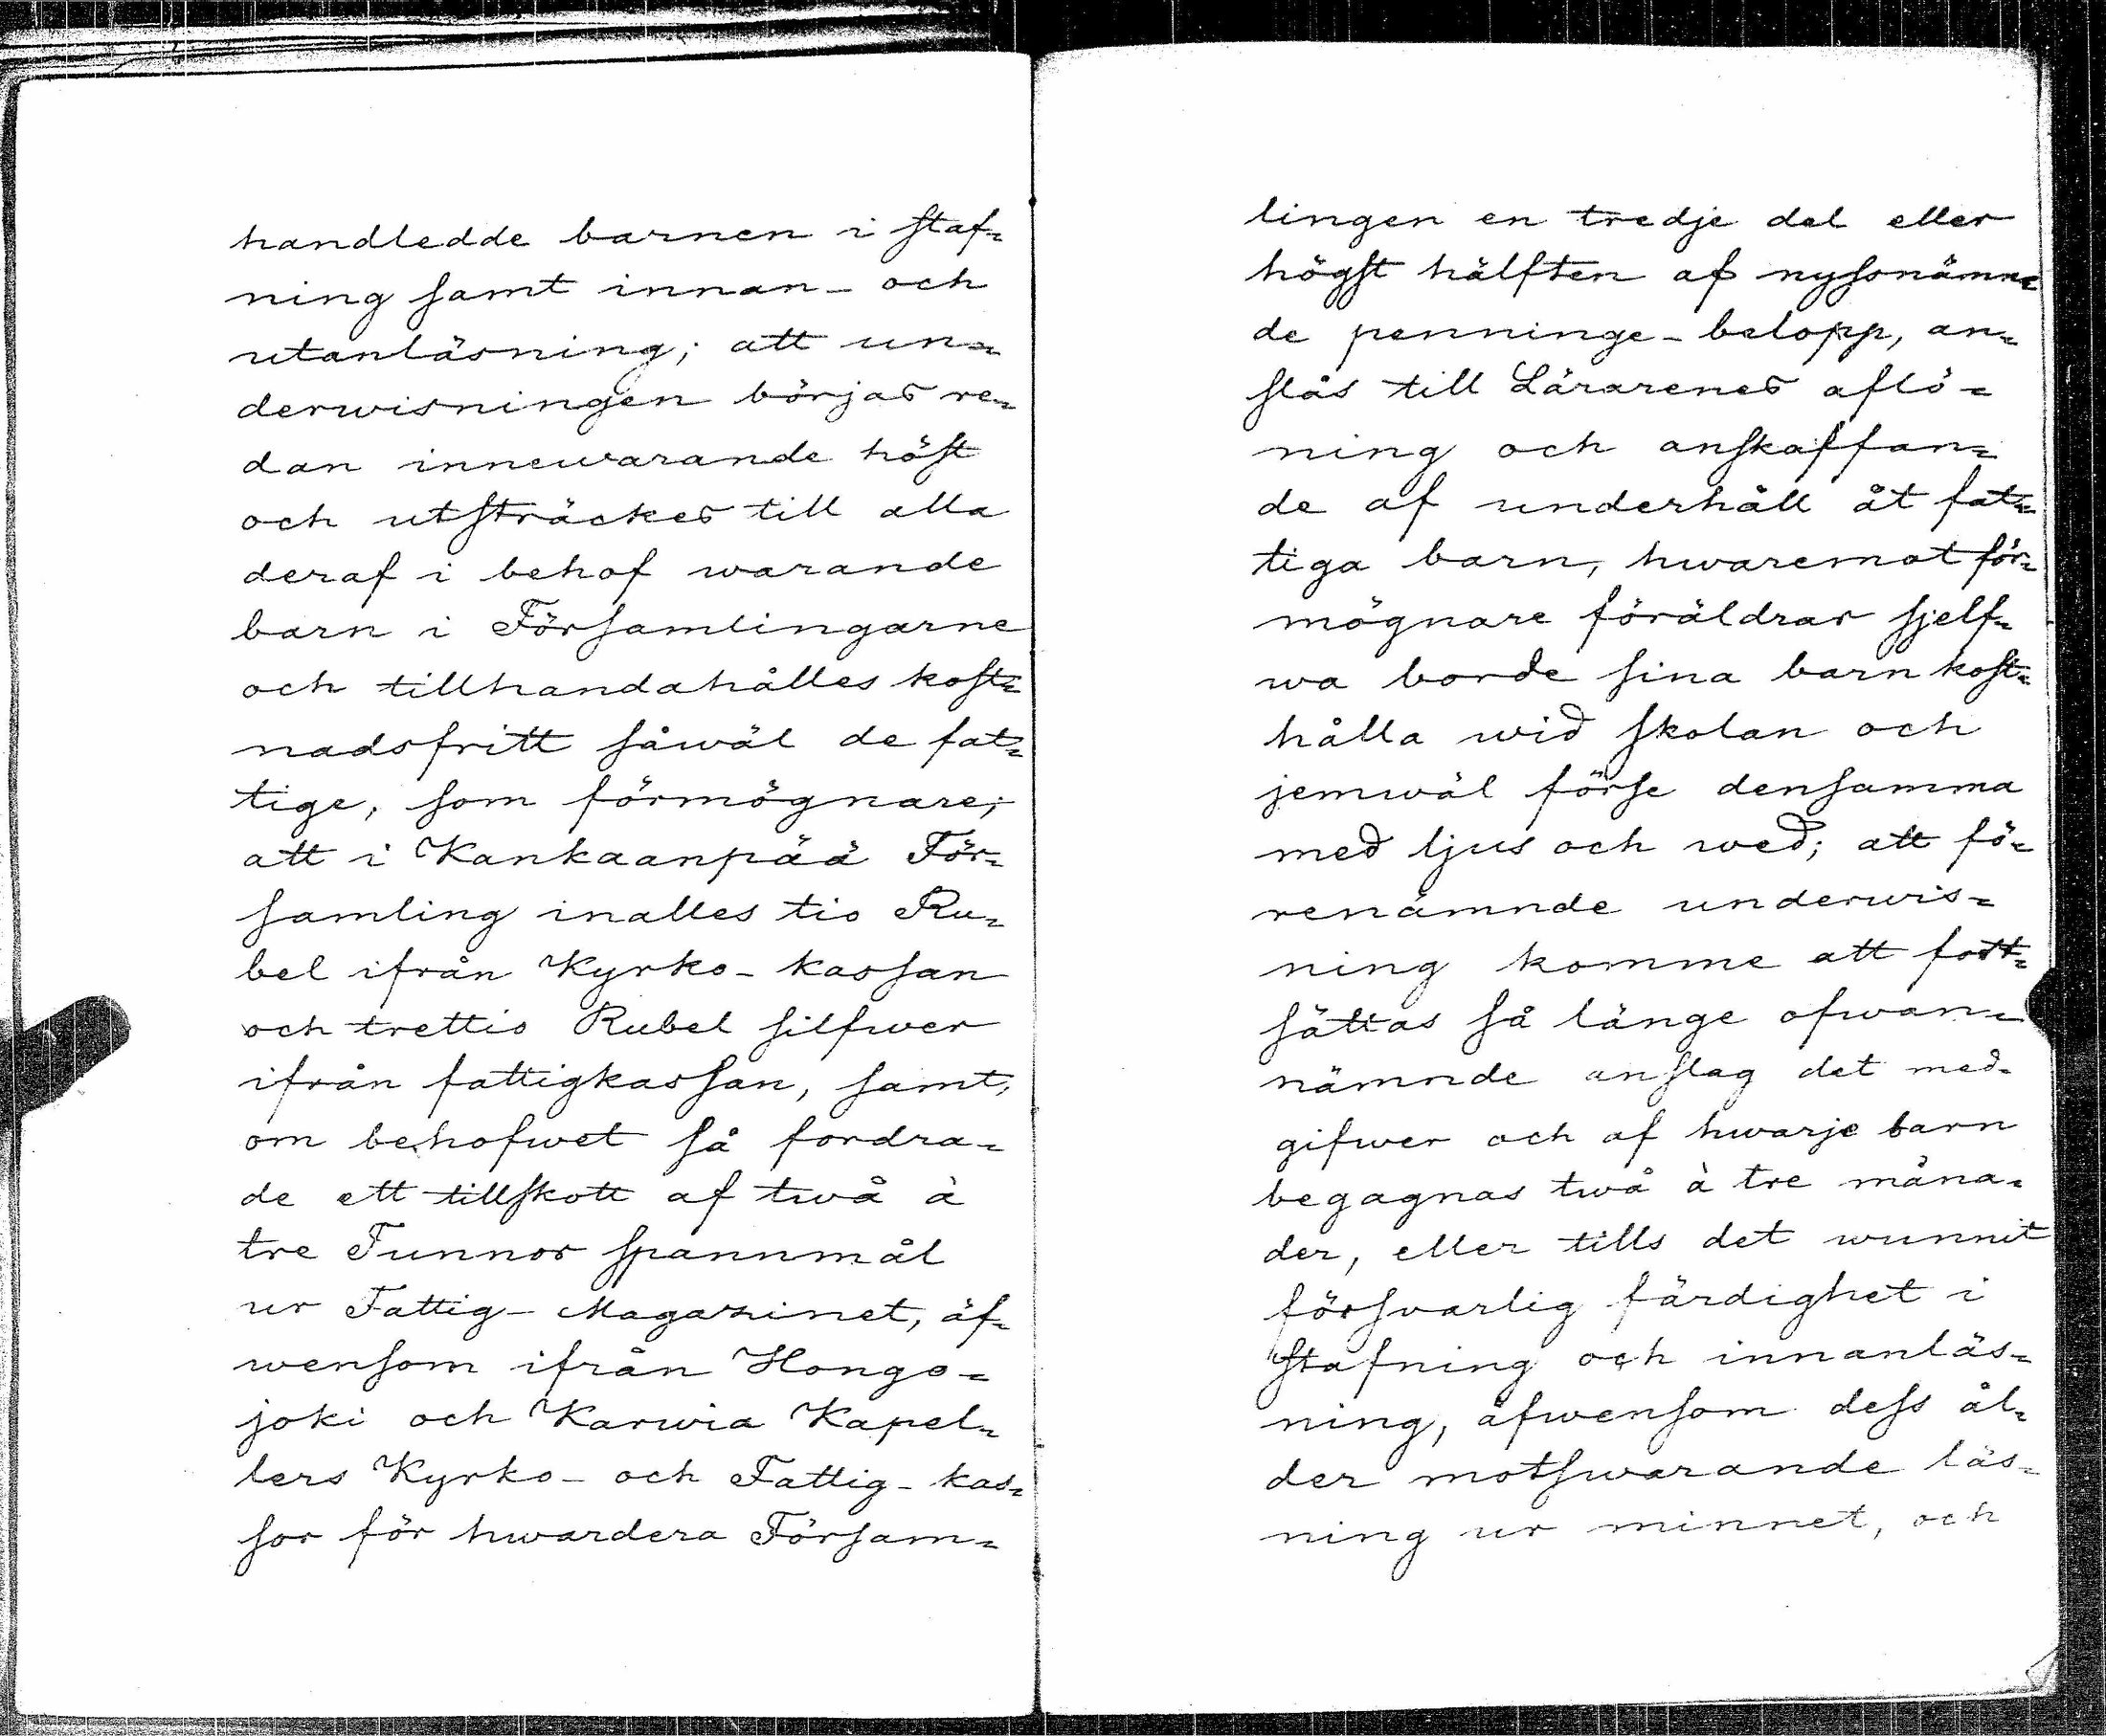 handledde barnen i staf=
ning samt innan- och
utanläsning; att un=
derwisningen börjas re=
dan innewarande höst
och utsträckes till alla
deraf i behof warande
barn i Församlingarne
och tillhandahålles kost=
nadsfritt såwäl de fat=
tige, som förmögnare;
att i Kankaanpää För=
samling inalles tio Ru=
bel ifrån Kyrko-kassan
och trettio Rubel silfwer
ifrån fattigkassan, samt,
om behofwet så fordra=
de ett tillskott af twå à
tre Tunnor spannmål
ur Fattig-Magazinet, äf=
wensom ifrån Hongo=
joki och Karwia Kapel=
lers Kyrko- och Fattig-kas=
sor för hwardera Försam=
lingen en tredje del eller
högst hälften af nyssnämn=
de penninge-belopp, an=
slås till Lärarenes aflö=
ning och anskaffan=
de af underhåll åt fat=
tiga barn, hwaremot för=
mögnare föräldrar sjelf=
wa borde sina barn kost=
hålla wid skolan och
jemwäl förse densamma
med ljus och wed; att fö=
renämnde underwis=
ning komme att fort=
sättas så länge ofwan=
nämnde anslag det med=
gifwer och af hwarje barn
begagnas twå à tre måna=
der, eller tills det wunnit
försvarlig färdighet i
stafning och innanläs=
ning, äfwensom dess ål=
der motswarande läs=
ning ur minnet, och